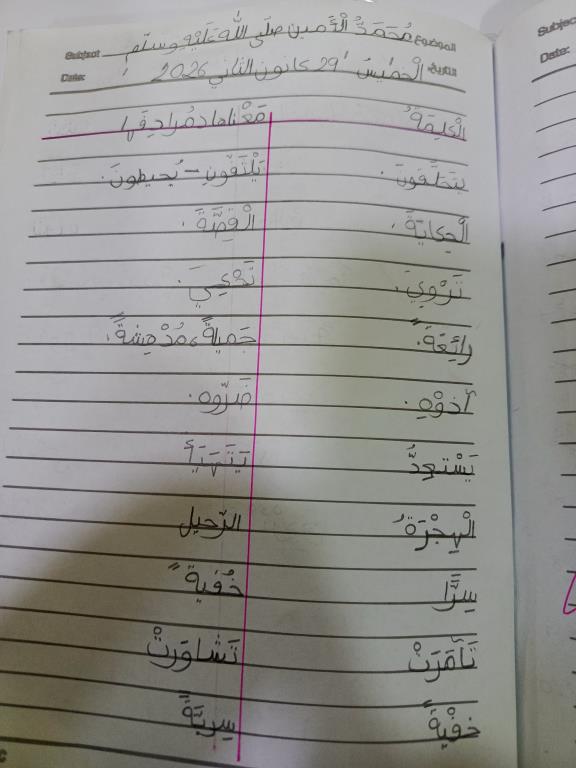 الموضوع مُحَمَّدٌ الْأَمين صَلَّى اللهُ عَلَيْهِ وسلّم Subject
التاريخ: الْخَميسُ 29 كانون الثاني 2026 Date:
الْكَلِمَةُ مَعْناها ومُرادِفُها
يتحلّقونَ. يَلْتَفّونِ - يُحيطونَ.
الْحِكايَةَ. الْقِصَّةَ.
تَرْوِيَ. تَحْكِيَ.
رائِعَةً. جَميلةً، مُدْهِشةً.
آذوْهِ. ضَرّوه.
يَسْتعِدُّ يَتَهَيَأُ
الْهِجْرَةُ الرّحيل
سِرًّا خُفيةً
تَآمَرَتْ تَشاوَرتْ
خفْيةً سِريّةً
Subject
Date: